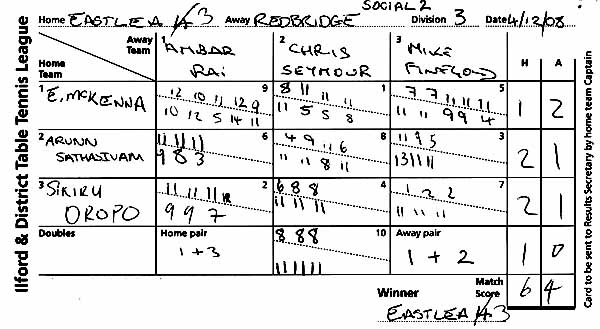 SOCIAL 2
Home EASTLEA A3 Away REDBRIDGE Division 3 Date 4/12/08
Ilford & District Table Tennis League
Away Team
Home Team
1 AMBAR RAI
2 CHRIS SEYMOUR
3 MIKE
H A
1 E. MCKENNA
9
12 10 11 12 9
10 12 5 14 11
1
8 11 11 11
11 5 5 8
5
7 7 11 11 11
11 11 9 9 4
1 2
2 ARUNN SATHASIVAM
6
11 11 11
9 8 3
8
4 9 11 6
11 11 8 11
3
11 9 5
13 11 11
2 1
3 SIKIRU OROPO
2
11 11 11
9 9 7
4
6 8 8
11 11 11
7
1 2 2
11 11 11
2 1
Doubles
Home pair
1 + 3
10
8 8 8
11 11 11
Away pair
1 + 2
1 0
Winner
Match Score
6 4
EASTLEA A3
Card to be sent to Results Secretary by home team Captain